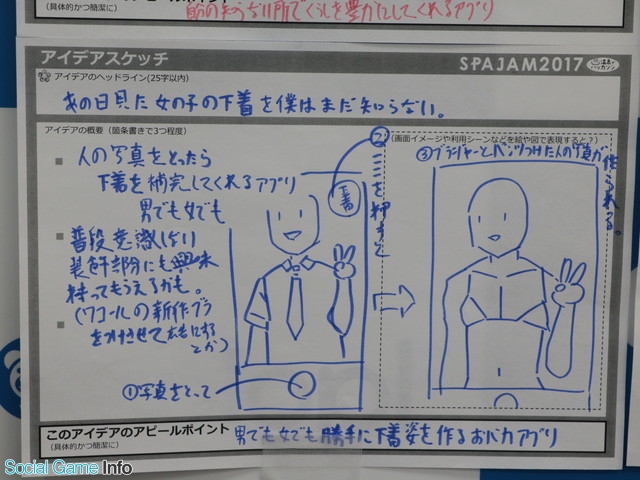 (具体的かつ簡潔に)
自分の知らない所でくらしを豊かにしてくれるアプリ
アイデアスケッチ
SPAJAM2017
温泉でハッカソン
アイデアのヘッドライン(25字以内)
あの日見た女の子の下着を僕はまだ知らない。
アイデアの概要(箇条書きで3つ程度)
人の写真をとったら
下着を補完してくれるアプリ
男でも女でも
普段意識しない
装飾部分にも興味
持ってもらえるかも。
(ワコールの新作ブラ
をつけさせて広告にする
とか)
(画面イメージや利用シーンなどを絵や図で表現すると?)
①写真をとって
下着
②ここを押すと
③ブラジャーとパンツつけた人の写真が作られる。
このアイデアのアピールポイント
(具体的かつ簡潔に)
男でも女でも勝手に下着姿を作るおバカアプリ
Social Game Info